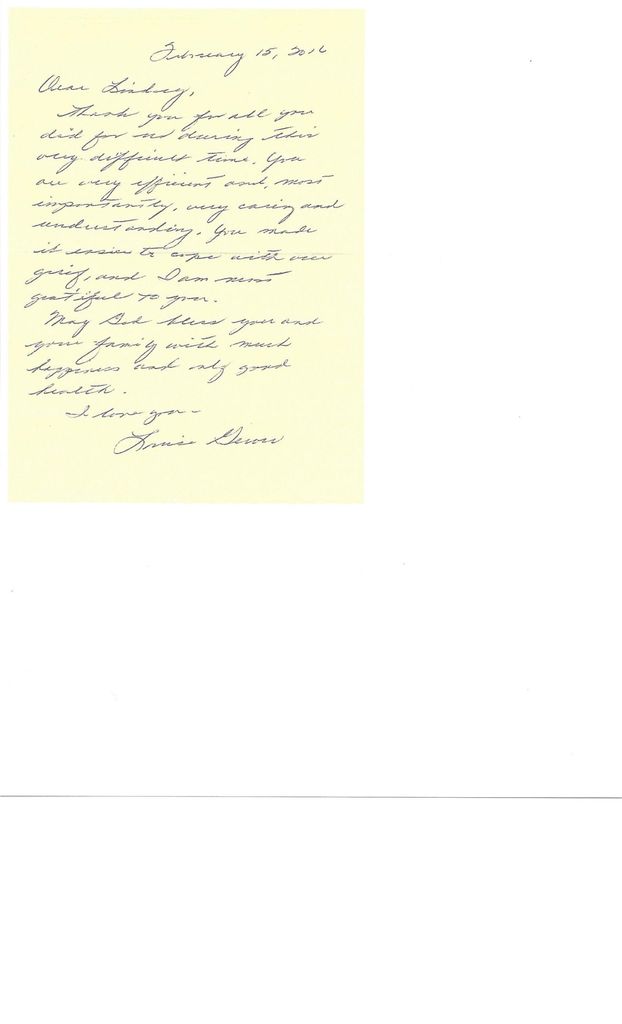 February 15, 2016
Dear Lindsey,
Thank you for all you
did for us during this
very difficult time. You
are very efficient and, most
importantly, very caring and
understanding. You made
it easier to cope with our
grief, and I am most
grateful to you.
May God bless you and
your family with much
happiness and good
health.
I love you -
Louise